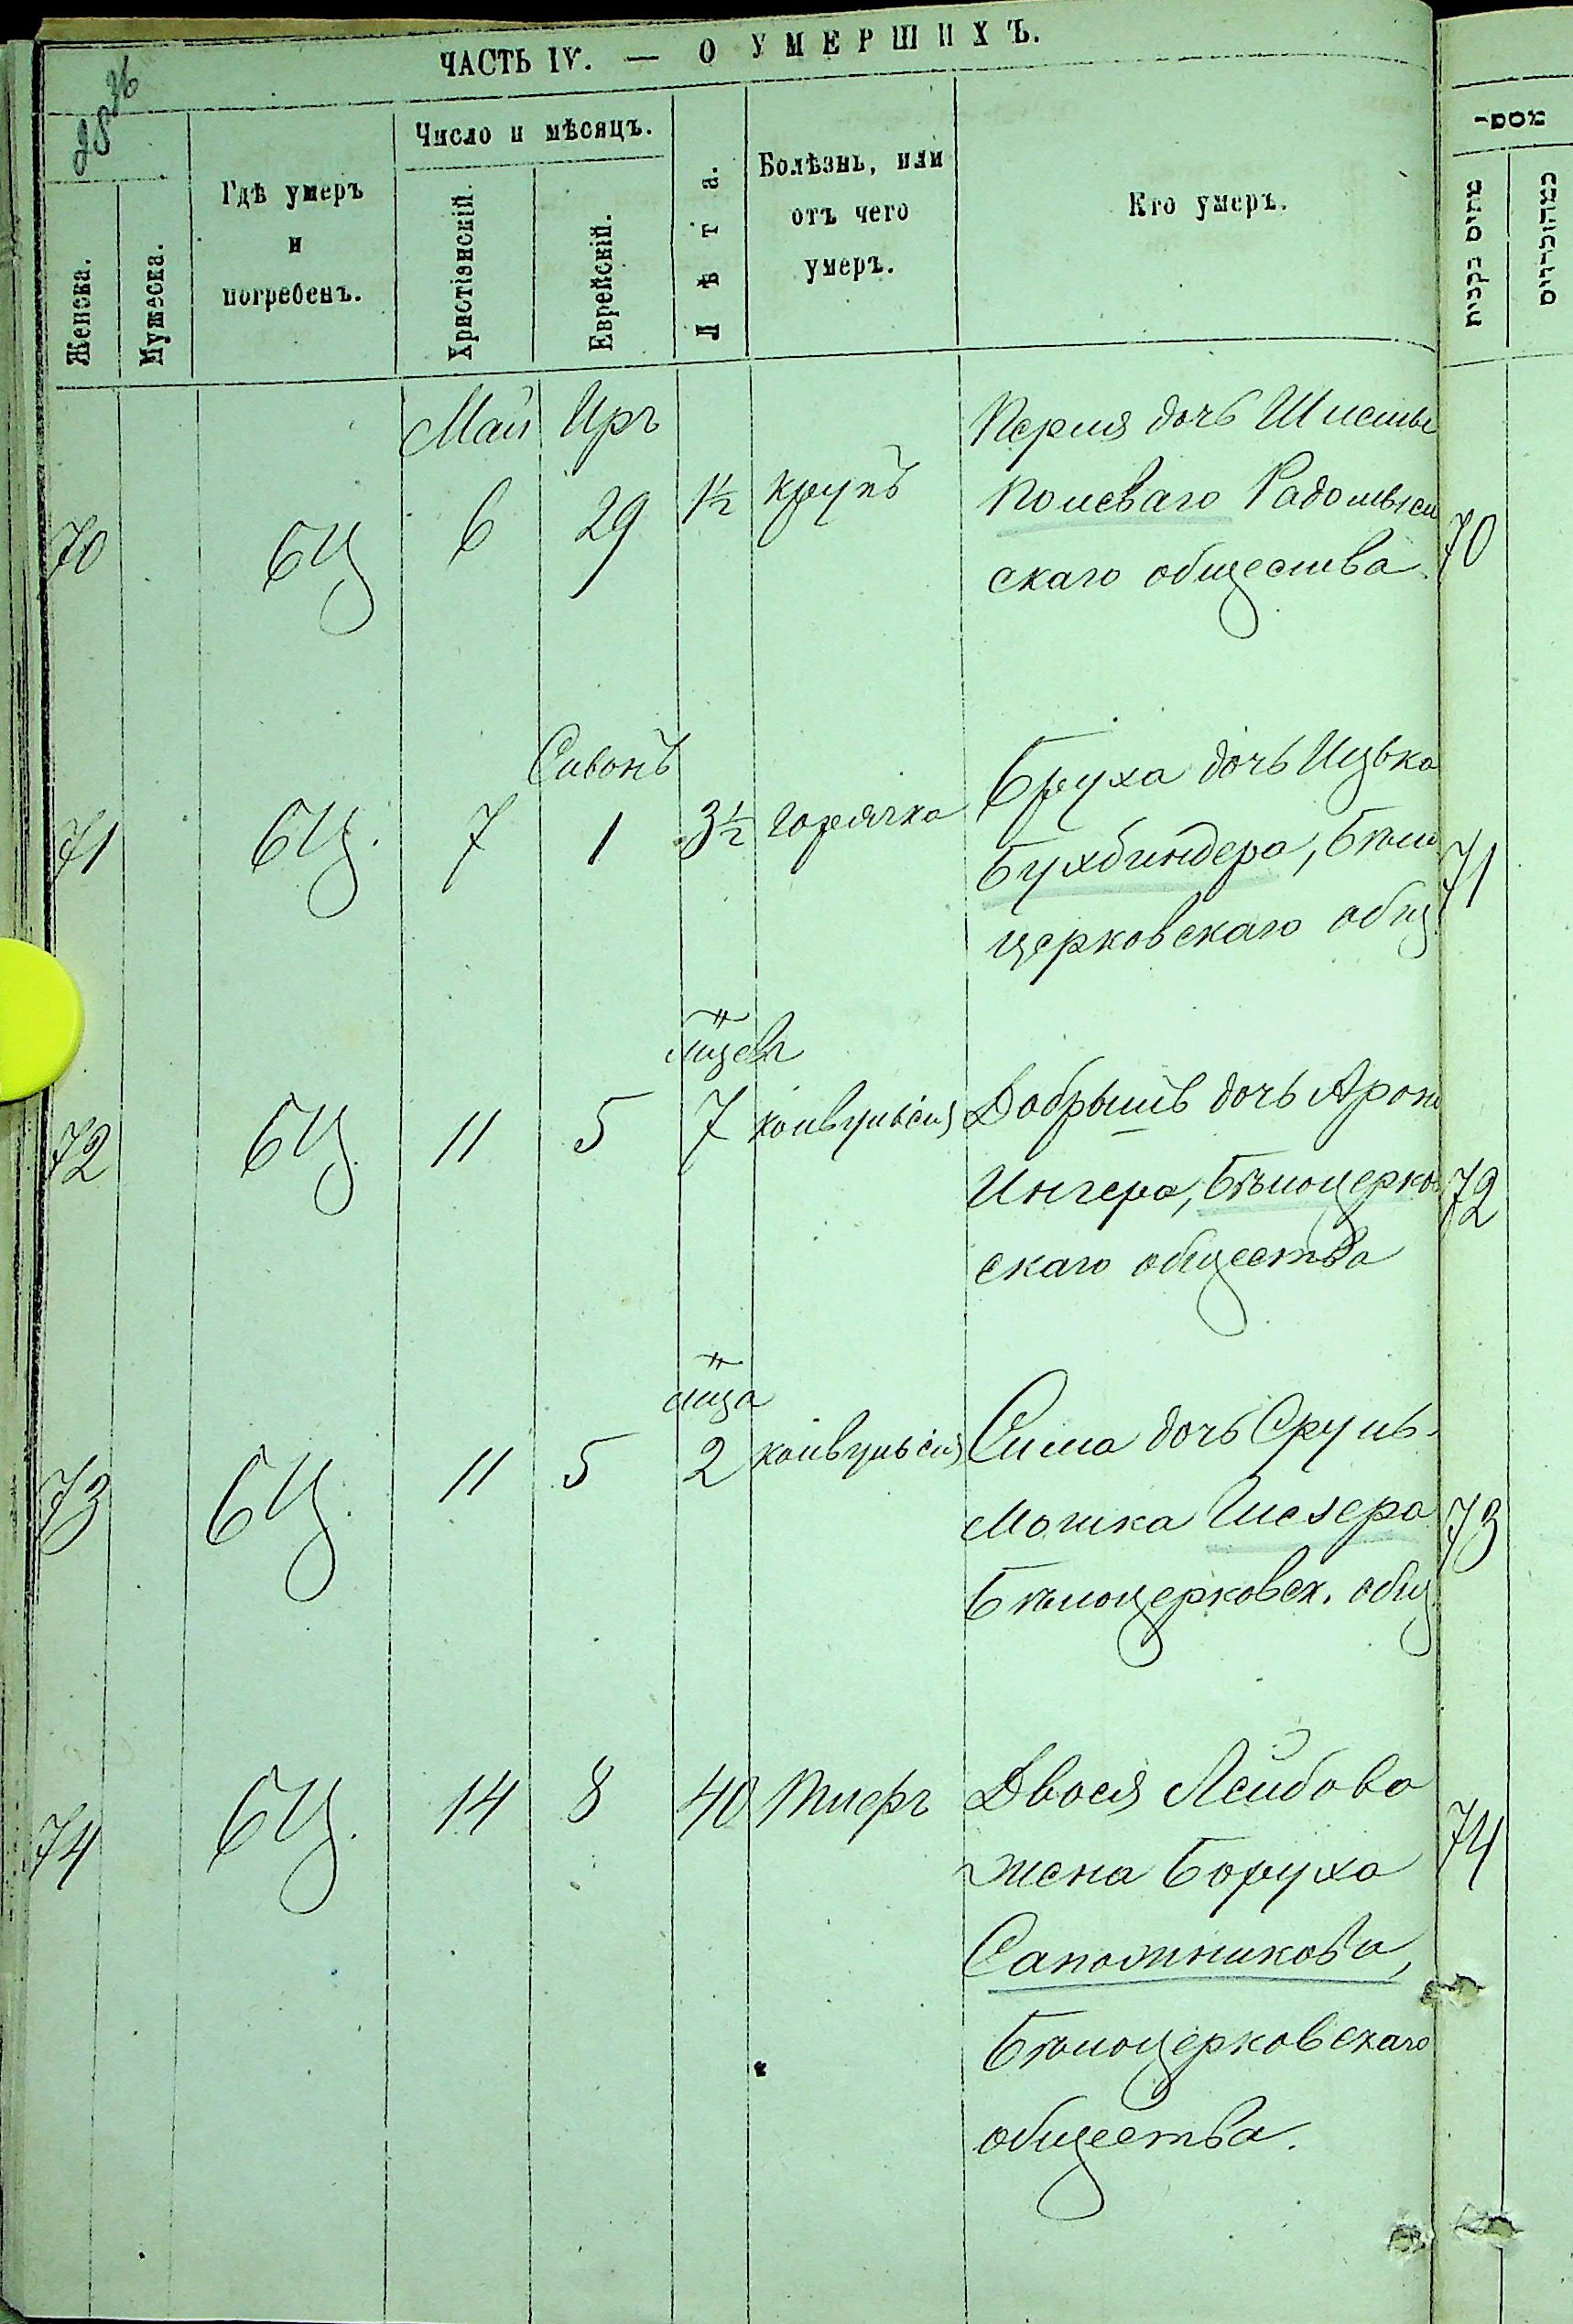 ЧАСТЬ IV. — О УМЕРШИХЪ.
28 36
Женска.
Мужеска.
Гдѣ умеръ
и
погребенъ.
Число и мѣсяцъ.
Христіянскій.
Еврейскій.
Лѣта.
Болѣзнь, или
отъ чего
умеръ.
Кто умеръ.
מתים נקבות
Май Иръ
70 БЦ 6 29 1½ крупъ
Перля дочь
Полеваго Радомысл
скаго общества 70
Сивонъ
71 БЦ. 7 1 3½ горячка
Бруха дочь Ицька
Бухбиндера, Бѣло
церковскаго общ 71
мцевъ
72 БЦ. 11 5 7 конвульсія
Добрышъ дочь Арона
Ингера, Бѣлоцерков
скаго общества 72
мца
73 БЦ. 11 5 2 конвульсія
Сима дочь Сруль-
Мошка
Бѣлоцерковск. общ 73
74 БЦ. 14 8 40 Тифъ
Двося Лейбова
жена Боруха
Сапожникова,
Бѣлоцерковскаго
общества. 74